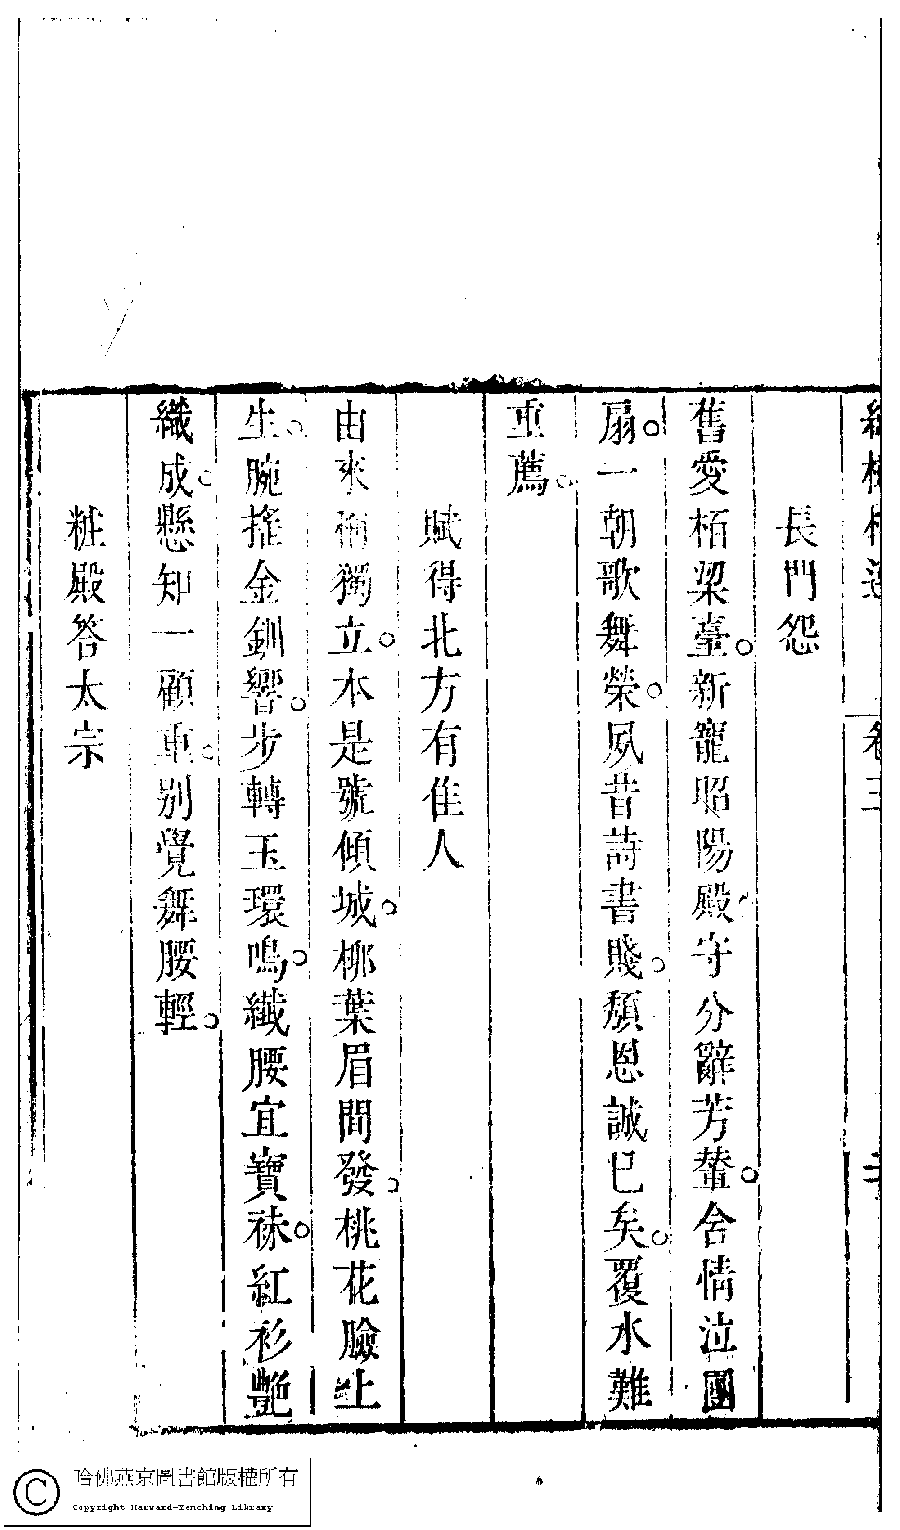 卷三
長門怨
舊愛栢梁臺。新寵昭陽殿。守分辭芳輦。含情泣團
扇。一朝歌舞榮。夙昔詩書賤。頹恩誠已矣。覆水難
重薦。
賦得北方有佳人
由來稱獨立。本是號傾城。柳葉眉間發。桃花臉上
生。腕搖金釧響。步轉玉環鳴。纖腰宜寶袜。紅衫艷
織成。懸知一顧重。別覺舞腰輕。
粧殿答太宗
哈佛燕京圖書館版權所有
Copyright Harvard-Yenching Library